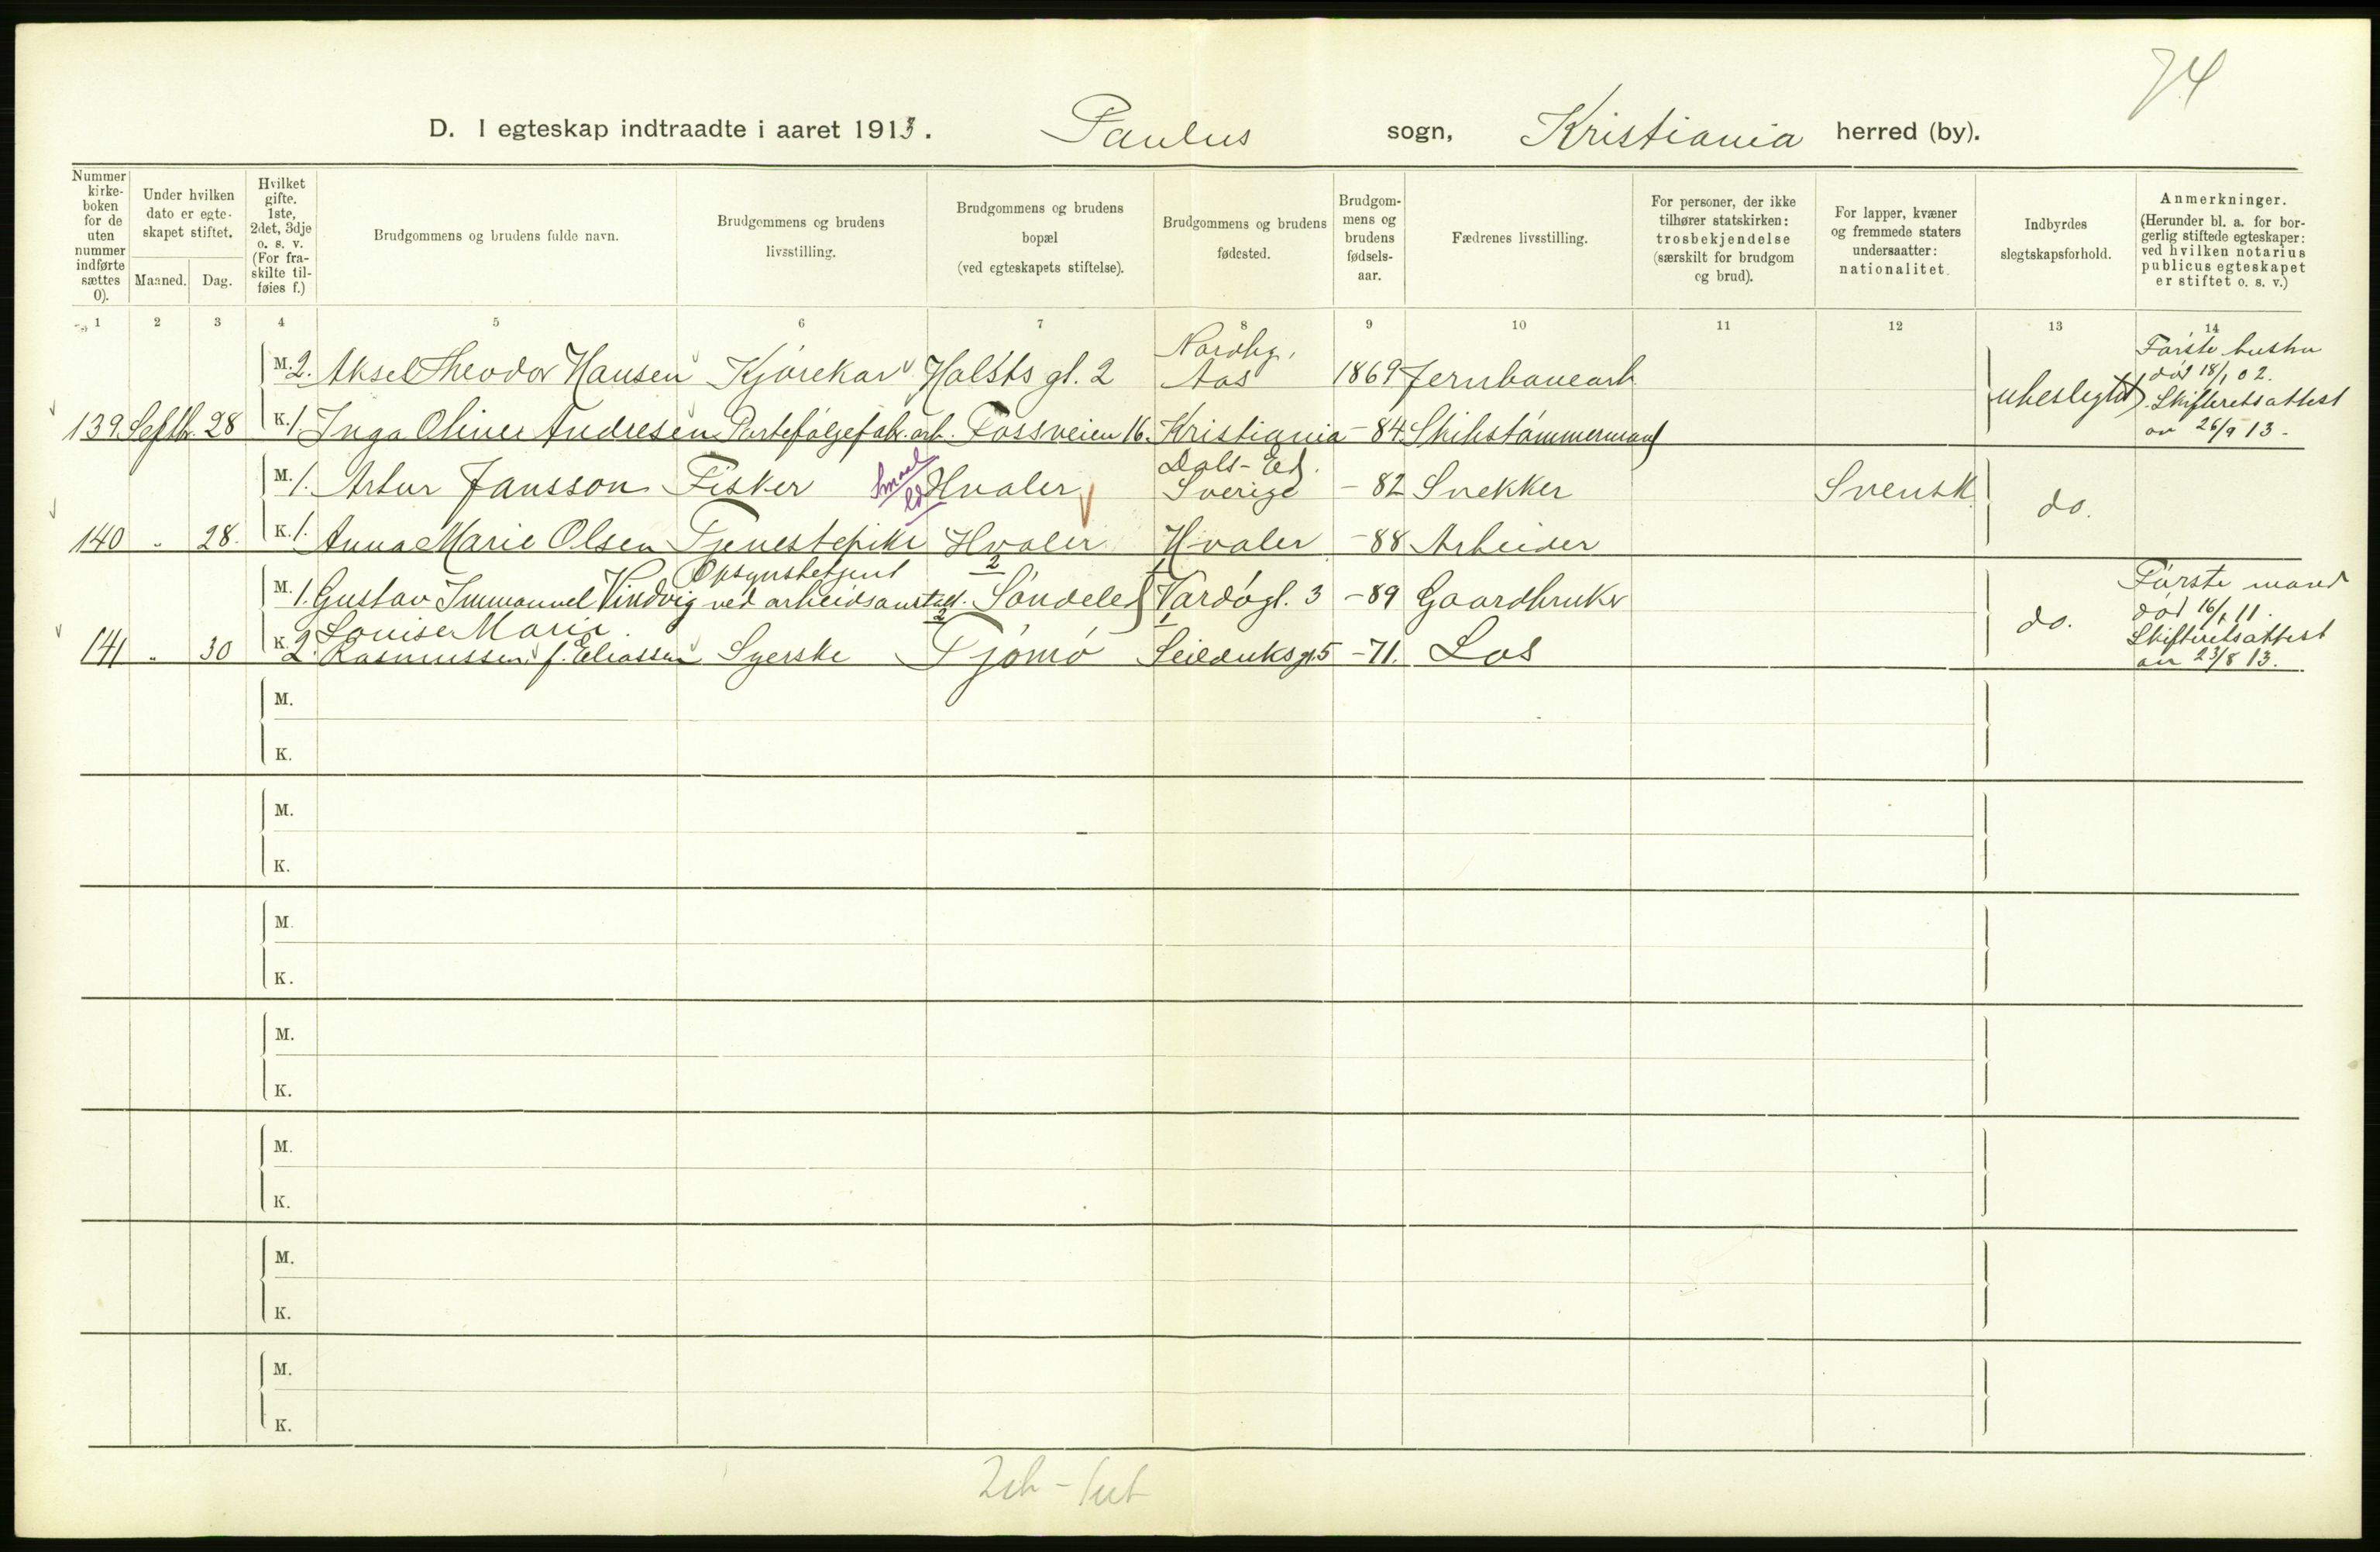 74
D. I egteskap indtraadte i aaret 1913. Paulus sogn, Kristiania herred (by).
Nummer kirke- boken for de uten nummer indførte sættes 0).
Under hvilken dato er egte- skapet stiftet.
Maaned. Dag.
Hvilket gifte. 1ste, 2det, 3dje o. s. v. (For fra- skilte til- føies f.)
Brudgommens og brudens fulde navn.
Brudgommens og brudens livsstilling.
Brudgommens og brudens bopæl (ved egteskapets stiftelse).
Brudgommens og brudens fødested.
Brudgom- mens og brudens fødsels- aar.
Fædrenes livsstilling.
For personer, der ikke tilhører statskirken: trosbekjendelse (særskilt for brudgom og brud).
For lapper, kvæner og fremmede staters undersaatter: nationalitet.
Indbyrdes slegtskapsforhold.
Anmerkninger. (Herunder bl. a. for bor- gerlig stiftede egteskaper: ved hvilken notarius publicus egteskapet er stiftet o. s. v.)
1 2 3 4 5 6 7 8 9 10 11 12 13 14
M. 2. Aksel Theodor Hansen Kjørekar Holsts gt. 2 Nordby, Aas 1869 Jernbanearb. ubeslegtet Første hustru død 18/1 02. Skifteretsattest av 26/9 13.
139 Septbr. 28 K. 1. Inga Oliver Andresen Portefølgefabr. arb. Fossveien 16. Kristiania - 84 Skibstømmermand
M. 1. Artur Jansson Fisker Smaal Hvaler Dals-Ed. Sverige - 82 Snekker Svensk do.
140 " 28. K. 1. Anna Marie Olsen Tjenestepike Hvaler Hvaler - 88 Arbeider
M. 1. Gustav Immanuel Vindvig Opsynsbetjent ved arbeidsanstalt. 2 Søndeled Vardøgt. 3 - 89 Gaardbruker do. Første mand død 16/1 11. Skifteretsattest av 23/8 13.
141 " 30 K. 2. Louise Marie Rasmussen f. Eliassen Syerske 2 Tjømø 1 Seilduksgt. 5 - 71. Los
M.
K.
M.
K.
M.
K.
M.
K.
M.
K.
M.
K.
M.
K.